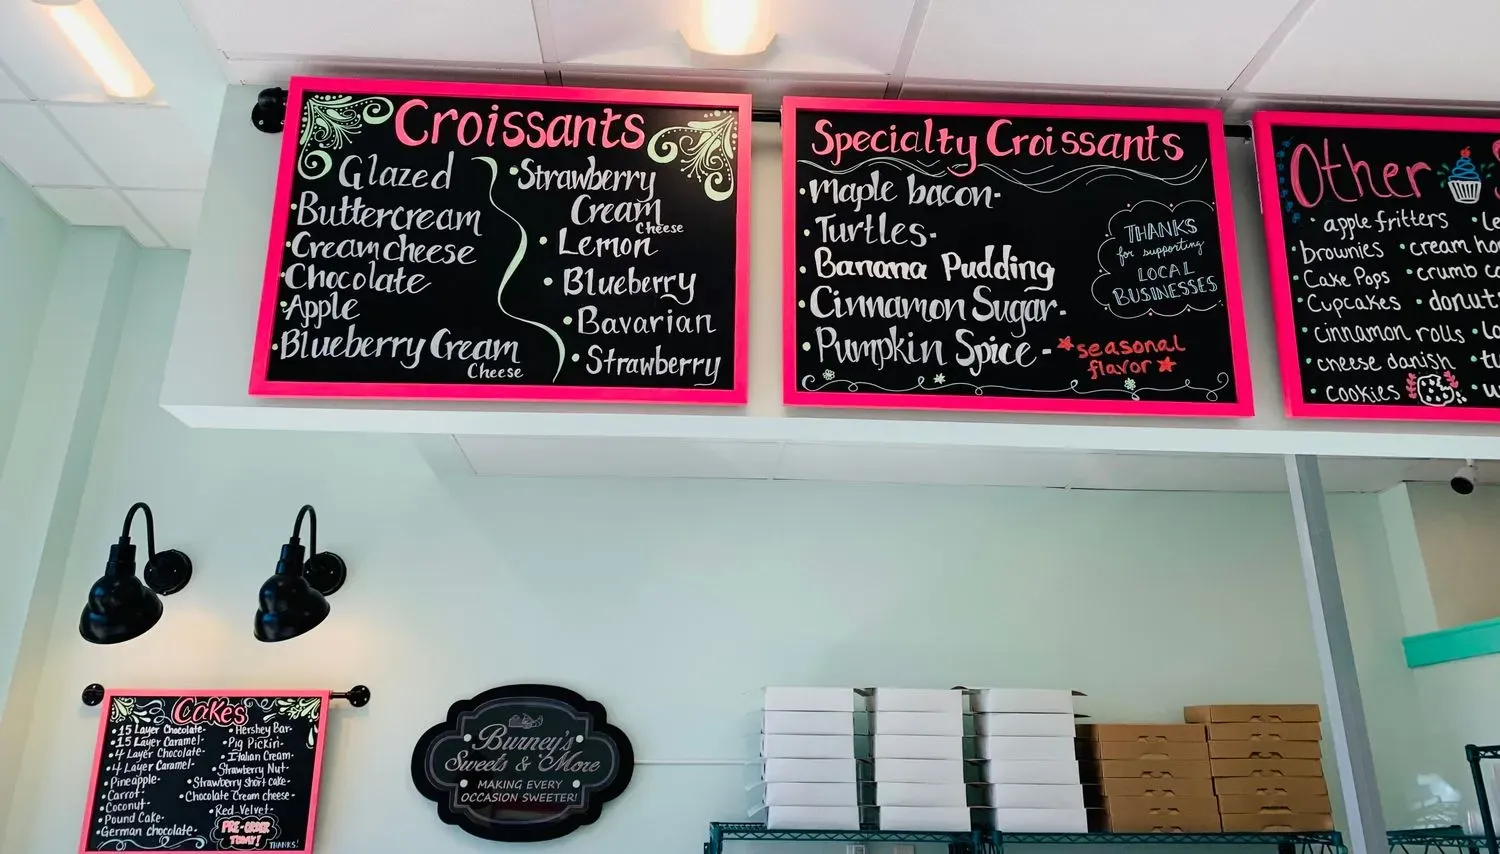 Croissants
Glazed
•Buttercream
•Creamcheese
•Chocolate
•Apple
•Blueberry Cream
Cheese
•Strawberry
Cream
Cheese
•Lemon
•Blueberry
•Bavarian
•Strawberry
Specialty Croissants
•Maple bacon-
•Turtles-
•Banana Pudding
•Cinnamon Sugar-
•Pumpkin Spice-
*seasonal
flavor*
THANKS
for supporting
LOCAL
BUSINESSES
Other
•apple fritters
•brownies
•Cake Pops
•Cupcakes
•cinnamon rolls
•cheese danish
•cookies
•cream
•crumb
Cakes
•15 Layer Chocolate-
•15 Layer Caramel-
•4 Layer Chocolate-
•4 Layer Caramel-
•Pineapple-
•Carrot-
•Coconut-
•Pound Cake-
•German chocolate-
•Hershey Bar-
•Pig Pickin-
•Italian Cream-
•Strawberry Nut-
•Strawberry short cake-
•Chocolate Cream cheese-
•Red Velvet-
PRE-ORDER
TODAY!
THANKS!
Burney's
Sweets & More
MAKING EVERY
OCCASION SWEETER!